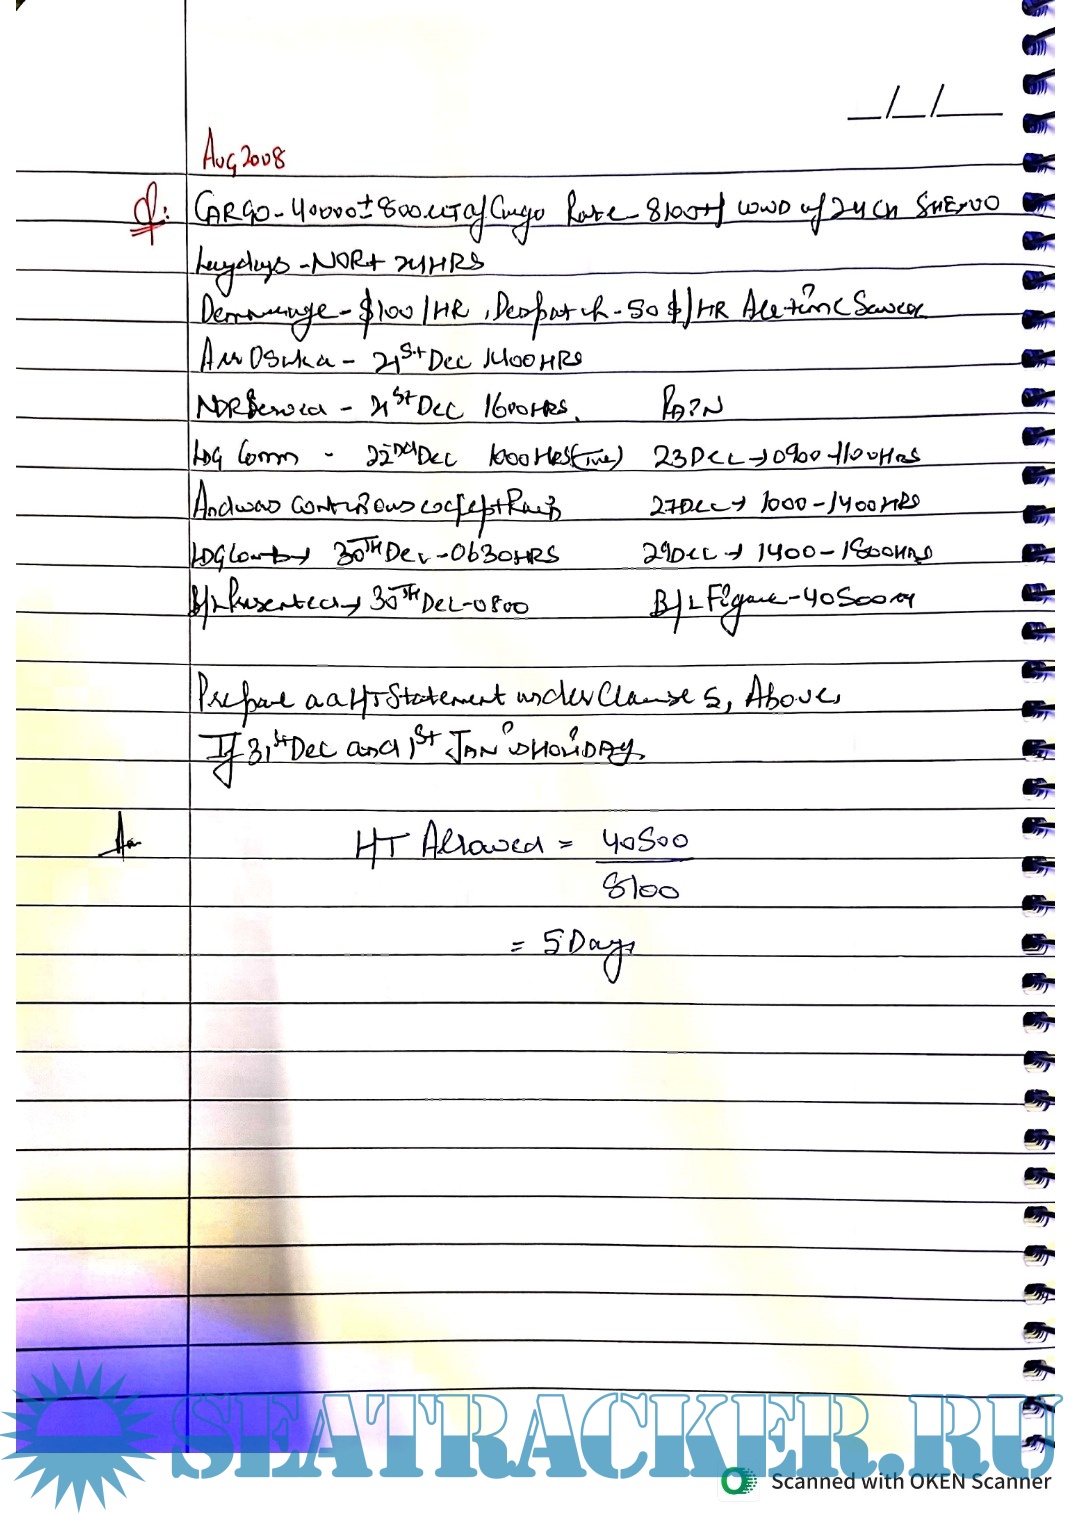 __/__/____
Aug 2008
Q: CARGO - 40000 ± 800 MT of Cargo Rate - 8100 t/ WWD of 24 CH SHEXUU
Laydays - NOR + 24 HRS
Demurrage - $100/HR, Despatch - 50 $/HR All time Saved
Arr Osaka - 21st Dec 1400 HRS
NOR Served - 21st Dec 1600 HRS. RAIN
LDG Comm - 22nd Dec 1000 HRS (Tue) 23 DEC → 0900 - 1100 HRS
And was continuous except Rain 27 Dec → 1000 - 1400 HRS
LDG Comp → 30TH Dec - 0630 HRS 29 Dec → 1400 - 1800 HRS
B/L Presented → 30TH Dec - 0800 B/L Figure - 40500 m
Prepare a a HT Statement under Clause 5, Above,
If 31st Dec and 1st JAN is HOLIDAY.
An HT Allowed = 40500
8100
= 5 Days
SEATRACKER.RU
Scanned with OKEN Scanner